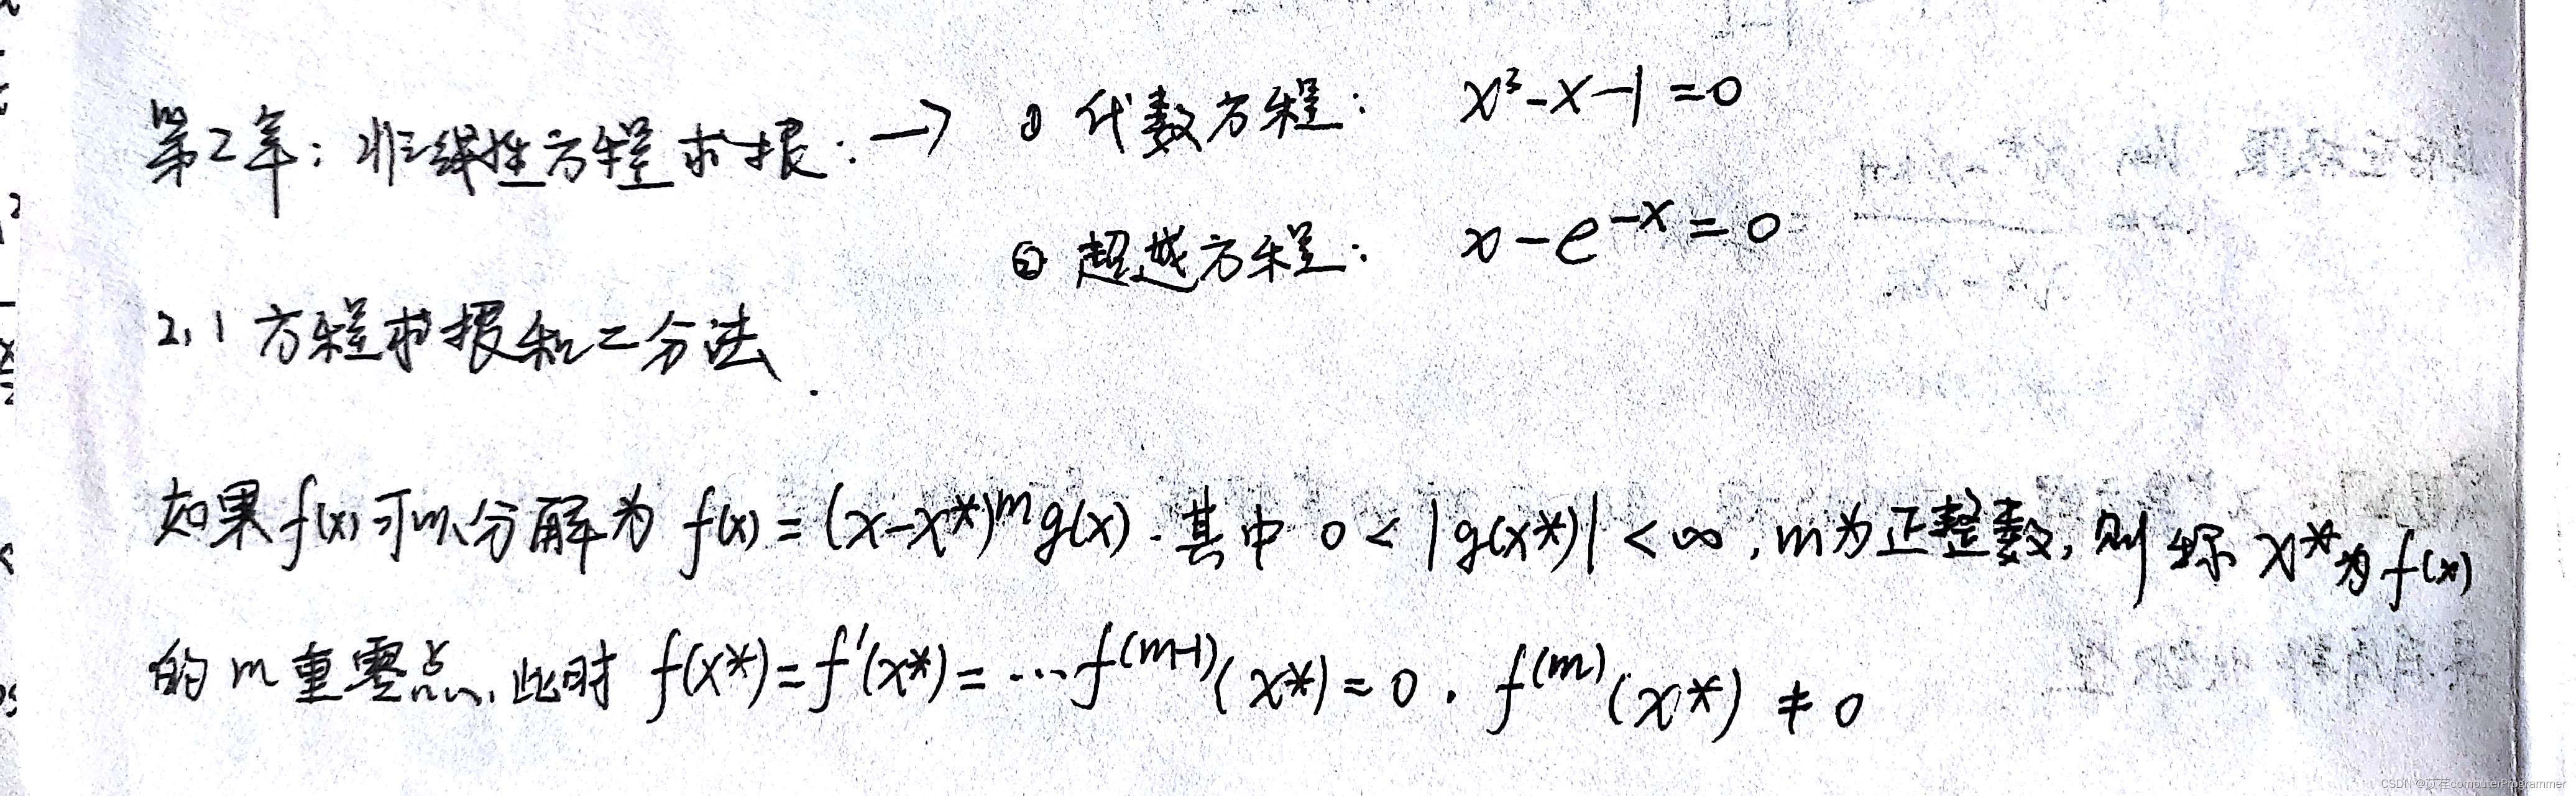 第2章：非线性方程求根：→ ① 代数方程： x³-x-1=0
② 超越方程： x-e^{-x}=0
2.1 方程求根和二分法.
如果f(x)可以分解为 f(x)=(x-x*)^m g(x).其中 0<|g(x*)|<∞,m为正整数,则称 x*为f(x)
的m重零点,此时 f(x*)=f'(x*)=…f^{(m-1)}(x*)=0. f^{(m)}(x*)≠0
CSDN @computerProgrammer